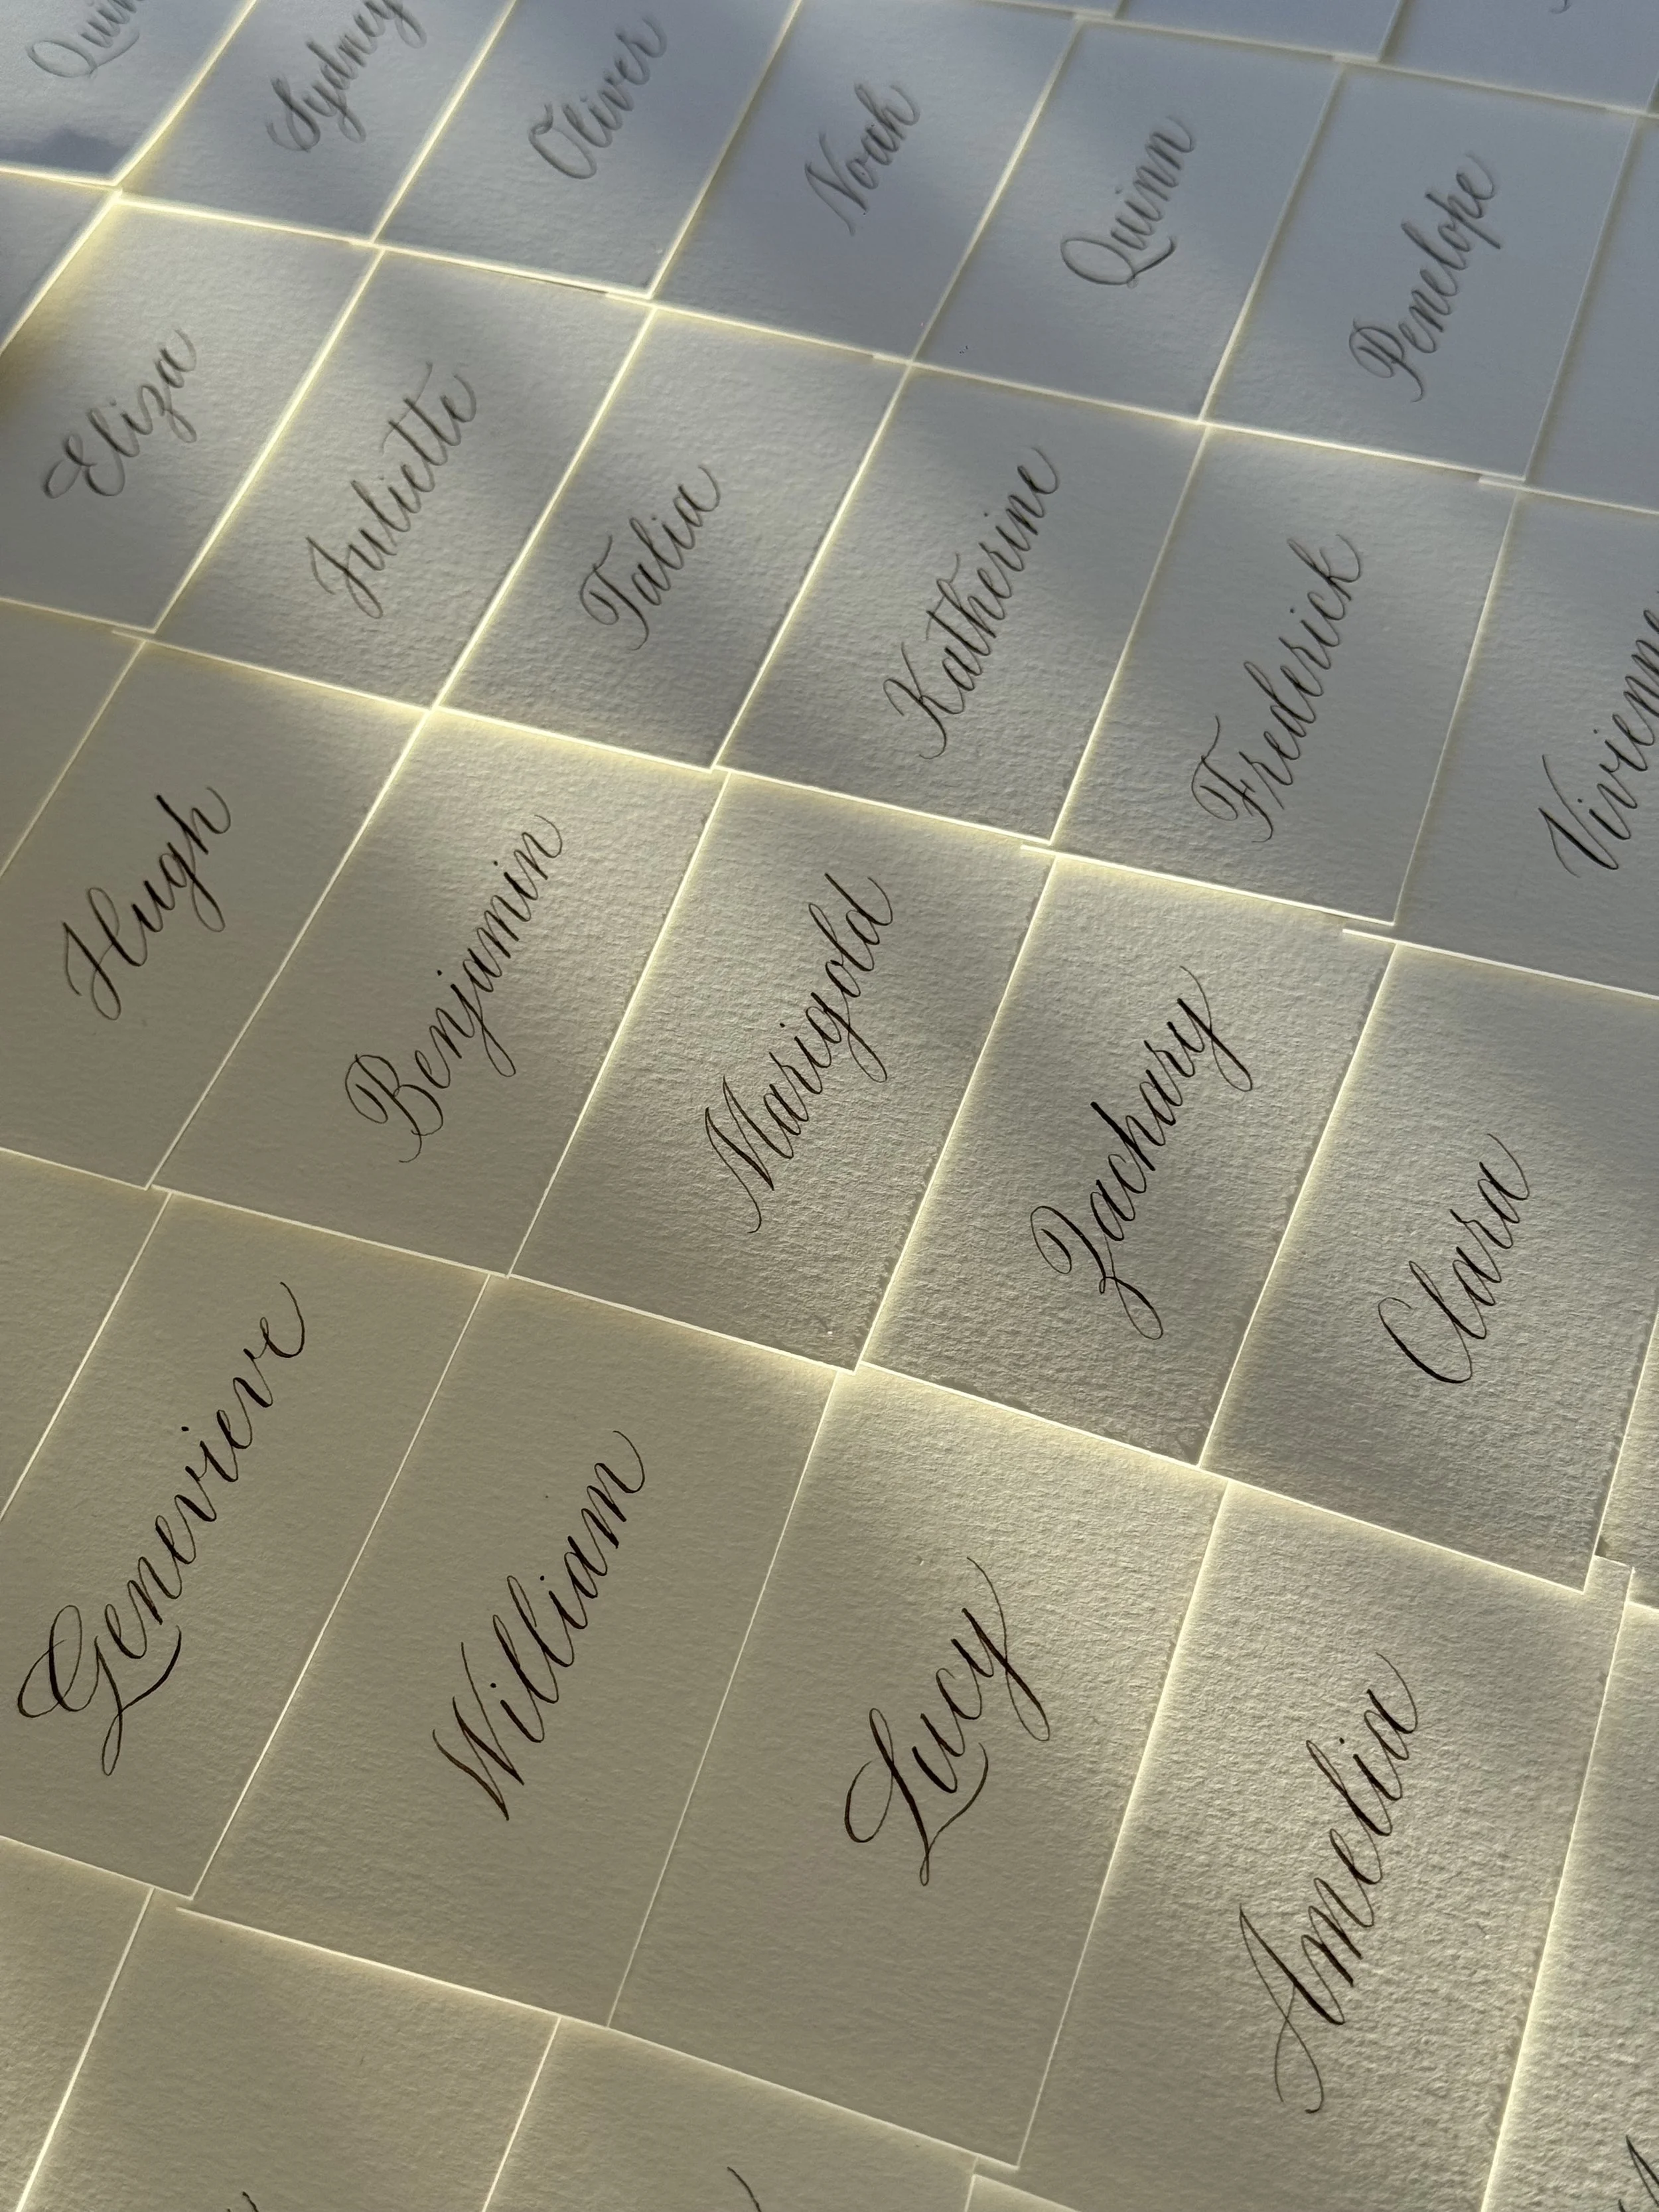 Sydney
Oliver
Noah
Quinn
Penelope
Eliza
Juliette
Talia
Katherine
Frederick
Hugh
Benjamin
Marigold
Zachary
Clara
Genevieve
William
Lucy
Amelia